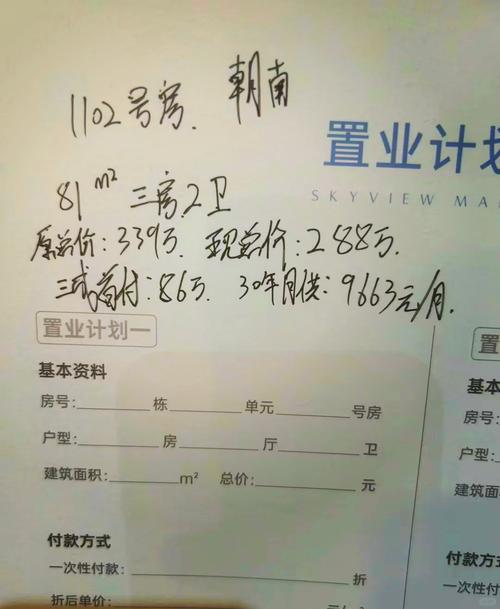 1102号房、朝南
置业计划
SKYVIEW MA
81m² 三房2卫
原总价:339万 现总价:288万.
三成首付:86万. 30年月供:9663元/月.
置业计划一
置
基本资料
基本
房号:______栋______单元______号房
房号:
户型:______房______厅______卫
户型:
建筑面积:______m² 总价:______元
建筑面积
付款方式
付款方式
一次性付款:______折
一次性付款
折后单价:
折后